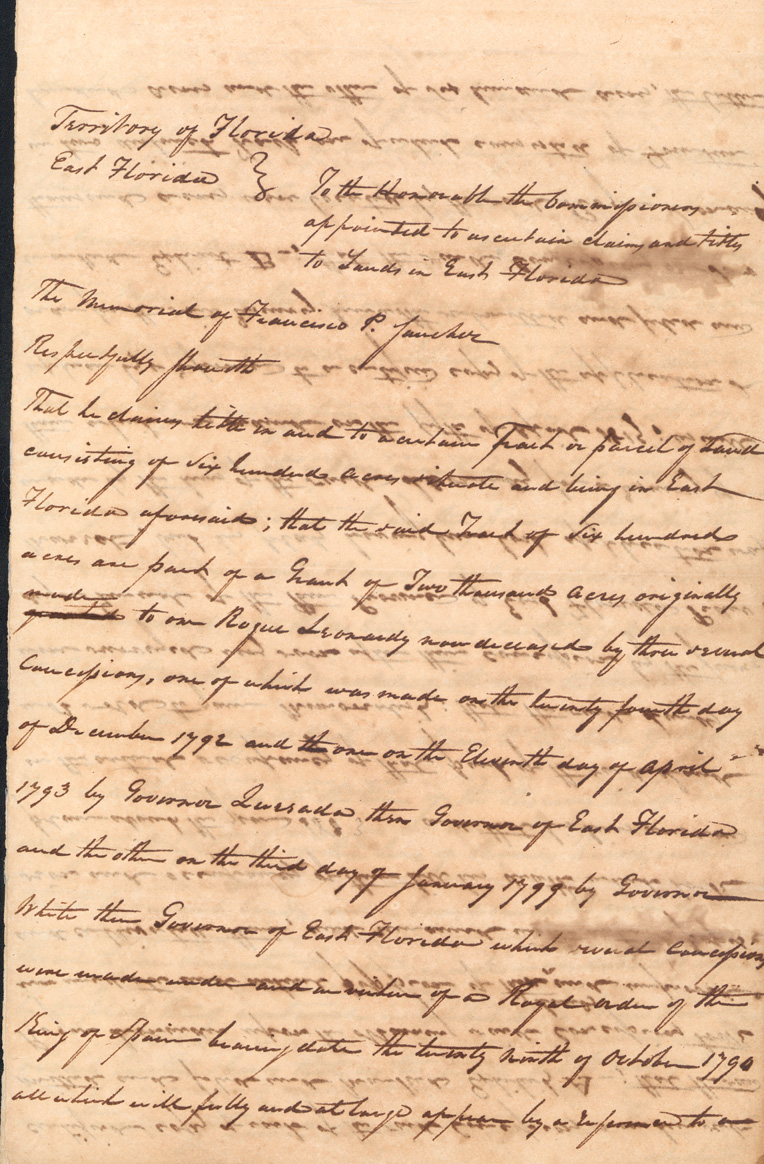 Territory of Florida
East Florida }
To the Honorable the Commissioners
appointed to ascertain claims and titles
to Lands in East Florida
The Memorial of Francisco P. Sanchez
Respectfully sheweth
That he claims title in and to a certain Tract or parcel of Land
consisting of Six hundred Acres situate and being in East
Florida aforesaid; that the said Tract of Six hundred
acres are part of a Grant of Two thousand Acres originally
made
granted to one Rogue Leonardy now deceased by three several
Concessions, one of which was made on the twenty fourth day
of December 1792 and the one on the Eleventh day of April
1793 by Governor Quesada then Governor of East Florida
and the other on the third day of January 1799 by Governor
White then Governor of East Florida which several Concessions
were made under and in virtue of a Royal order of the
King of Spain bearing date the twenty ninth of October 1790
all which will fully and at large appear by a reference to